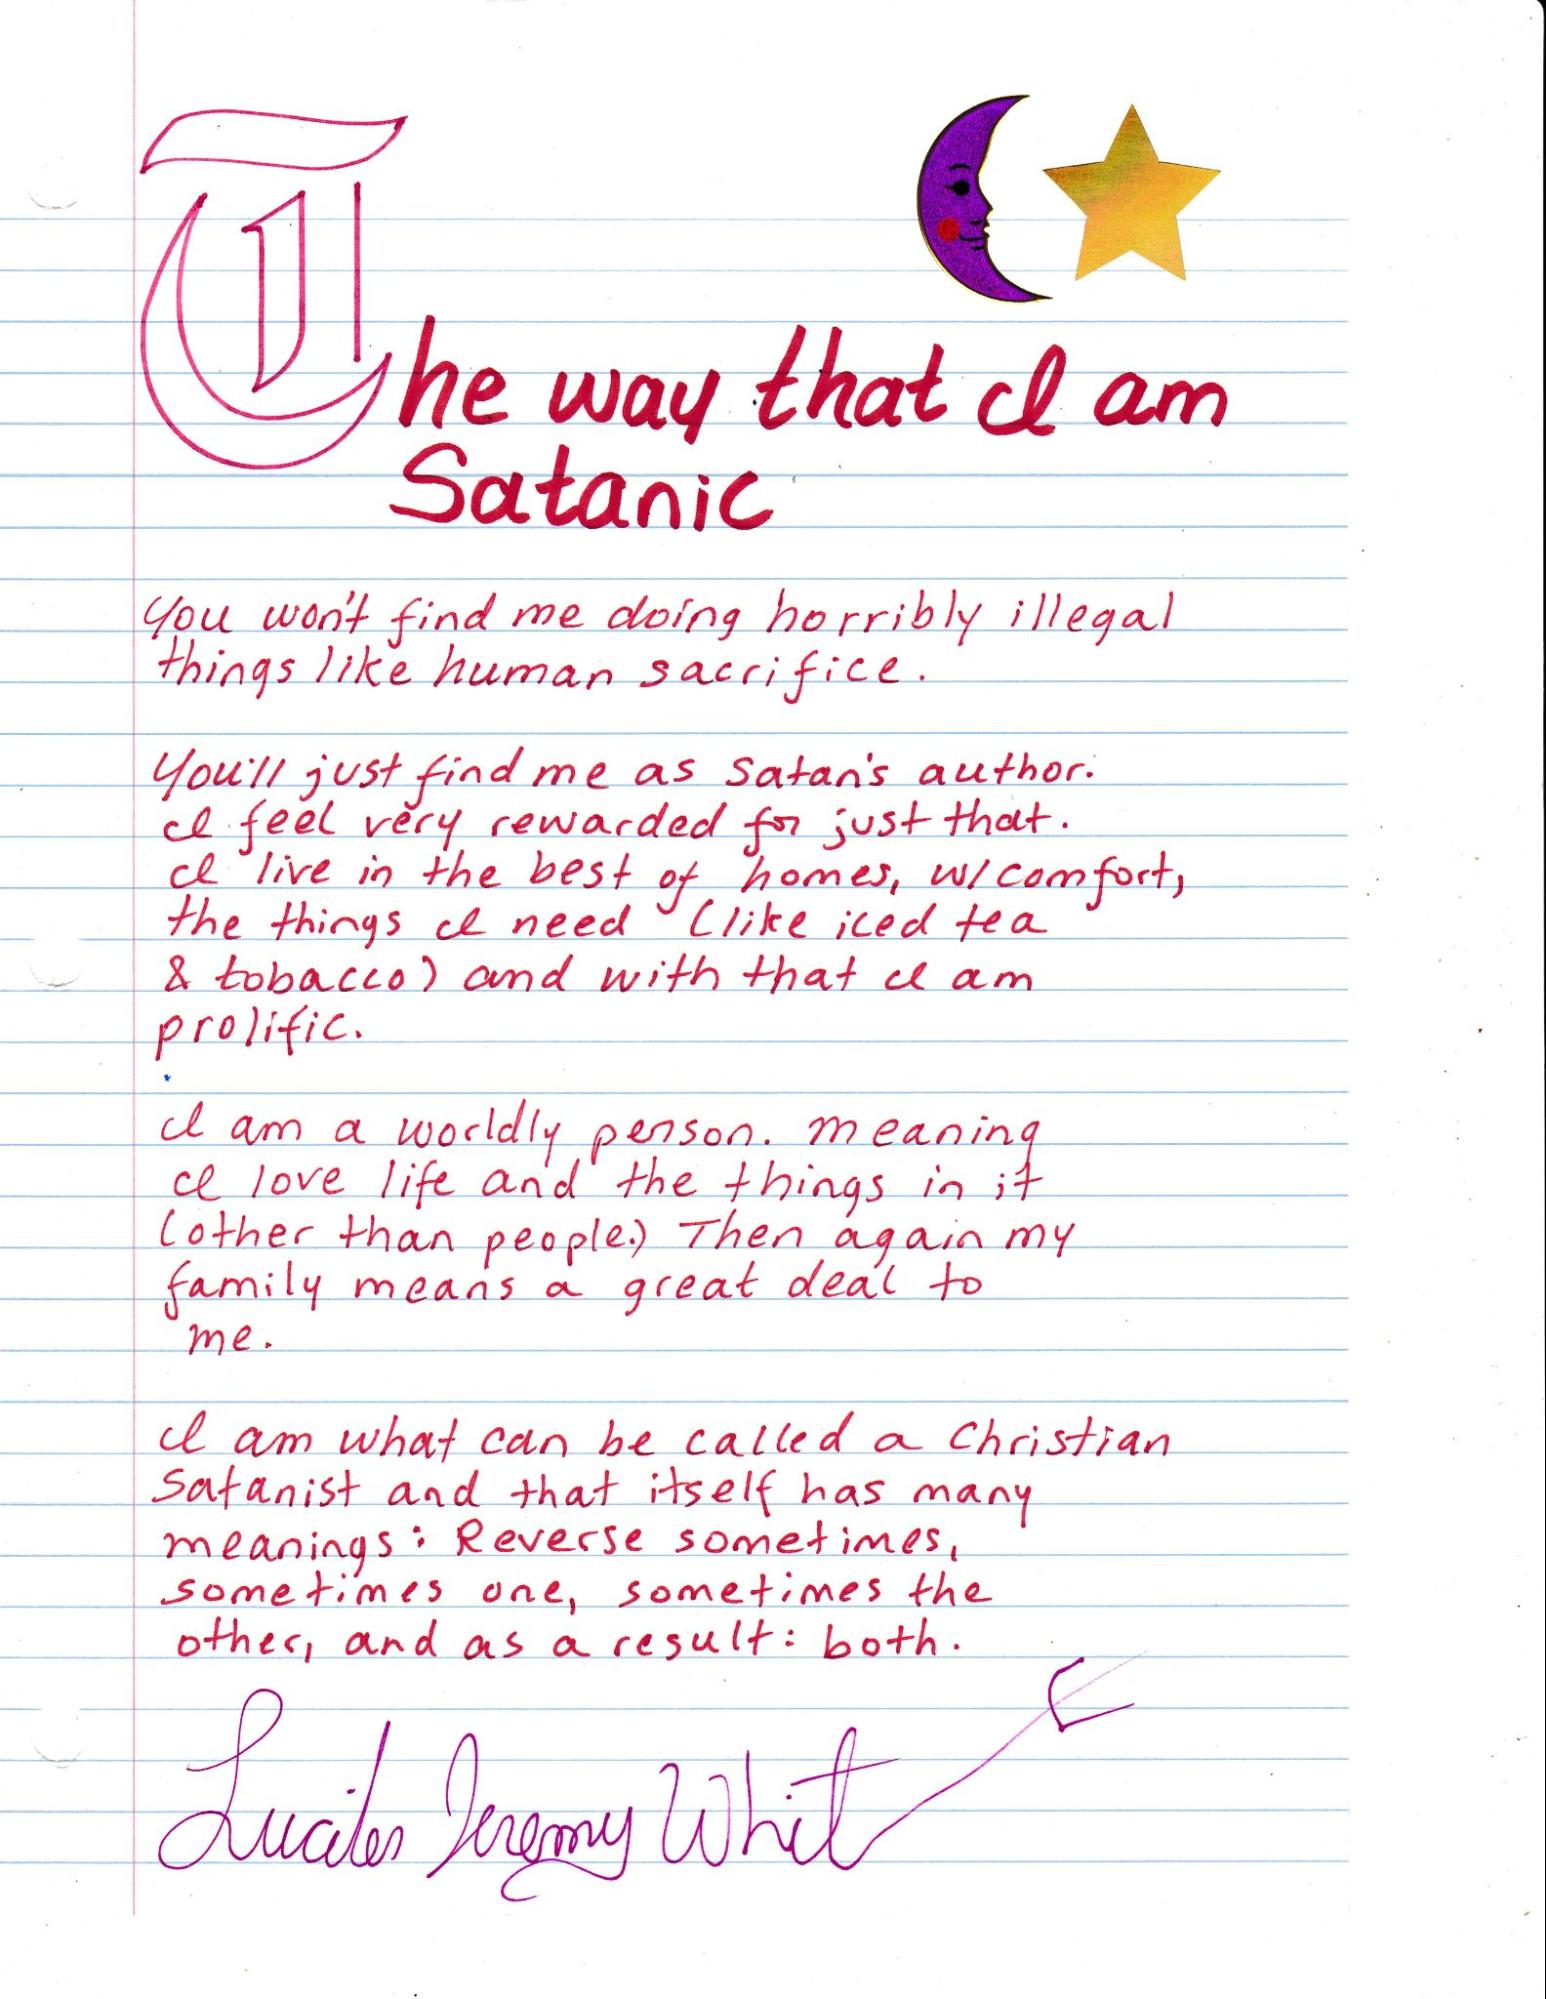 The way that I am
Satanic
You won't find me doing horribly illegal
things like human sacrifice.
You'll just find me as Satan's author.
I feel very rewarded for just that.
I live in the best of homes, w/comfort,
the things I need (like iced tea
& tobacco) and with that I am
prolific.
I am a worldly person. Meaning
I love life and the things in it
(other than people.) Then again my
family means a great deal to
me.
I am what can be called a Christian
Satanist and that itself has many
meanings: Reverse sometimes,
sometimes one, sometimes the
other, and as a result: both.
Jeremy White